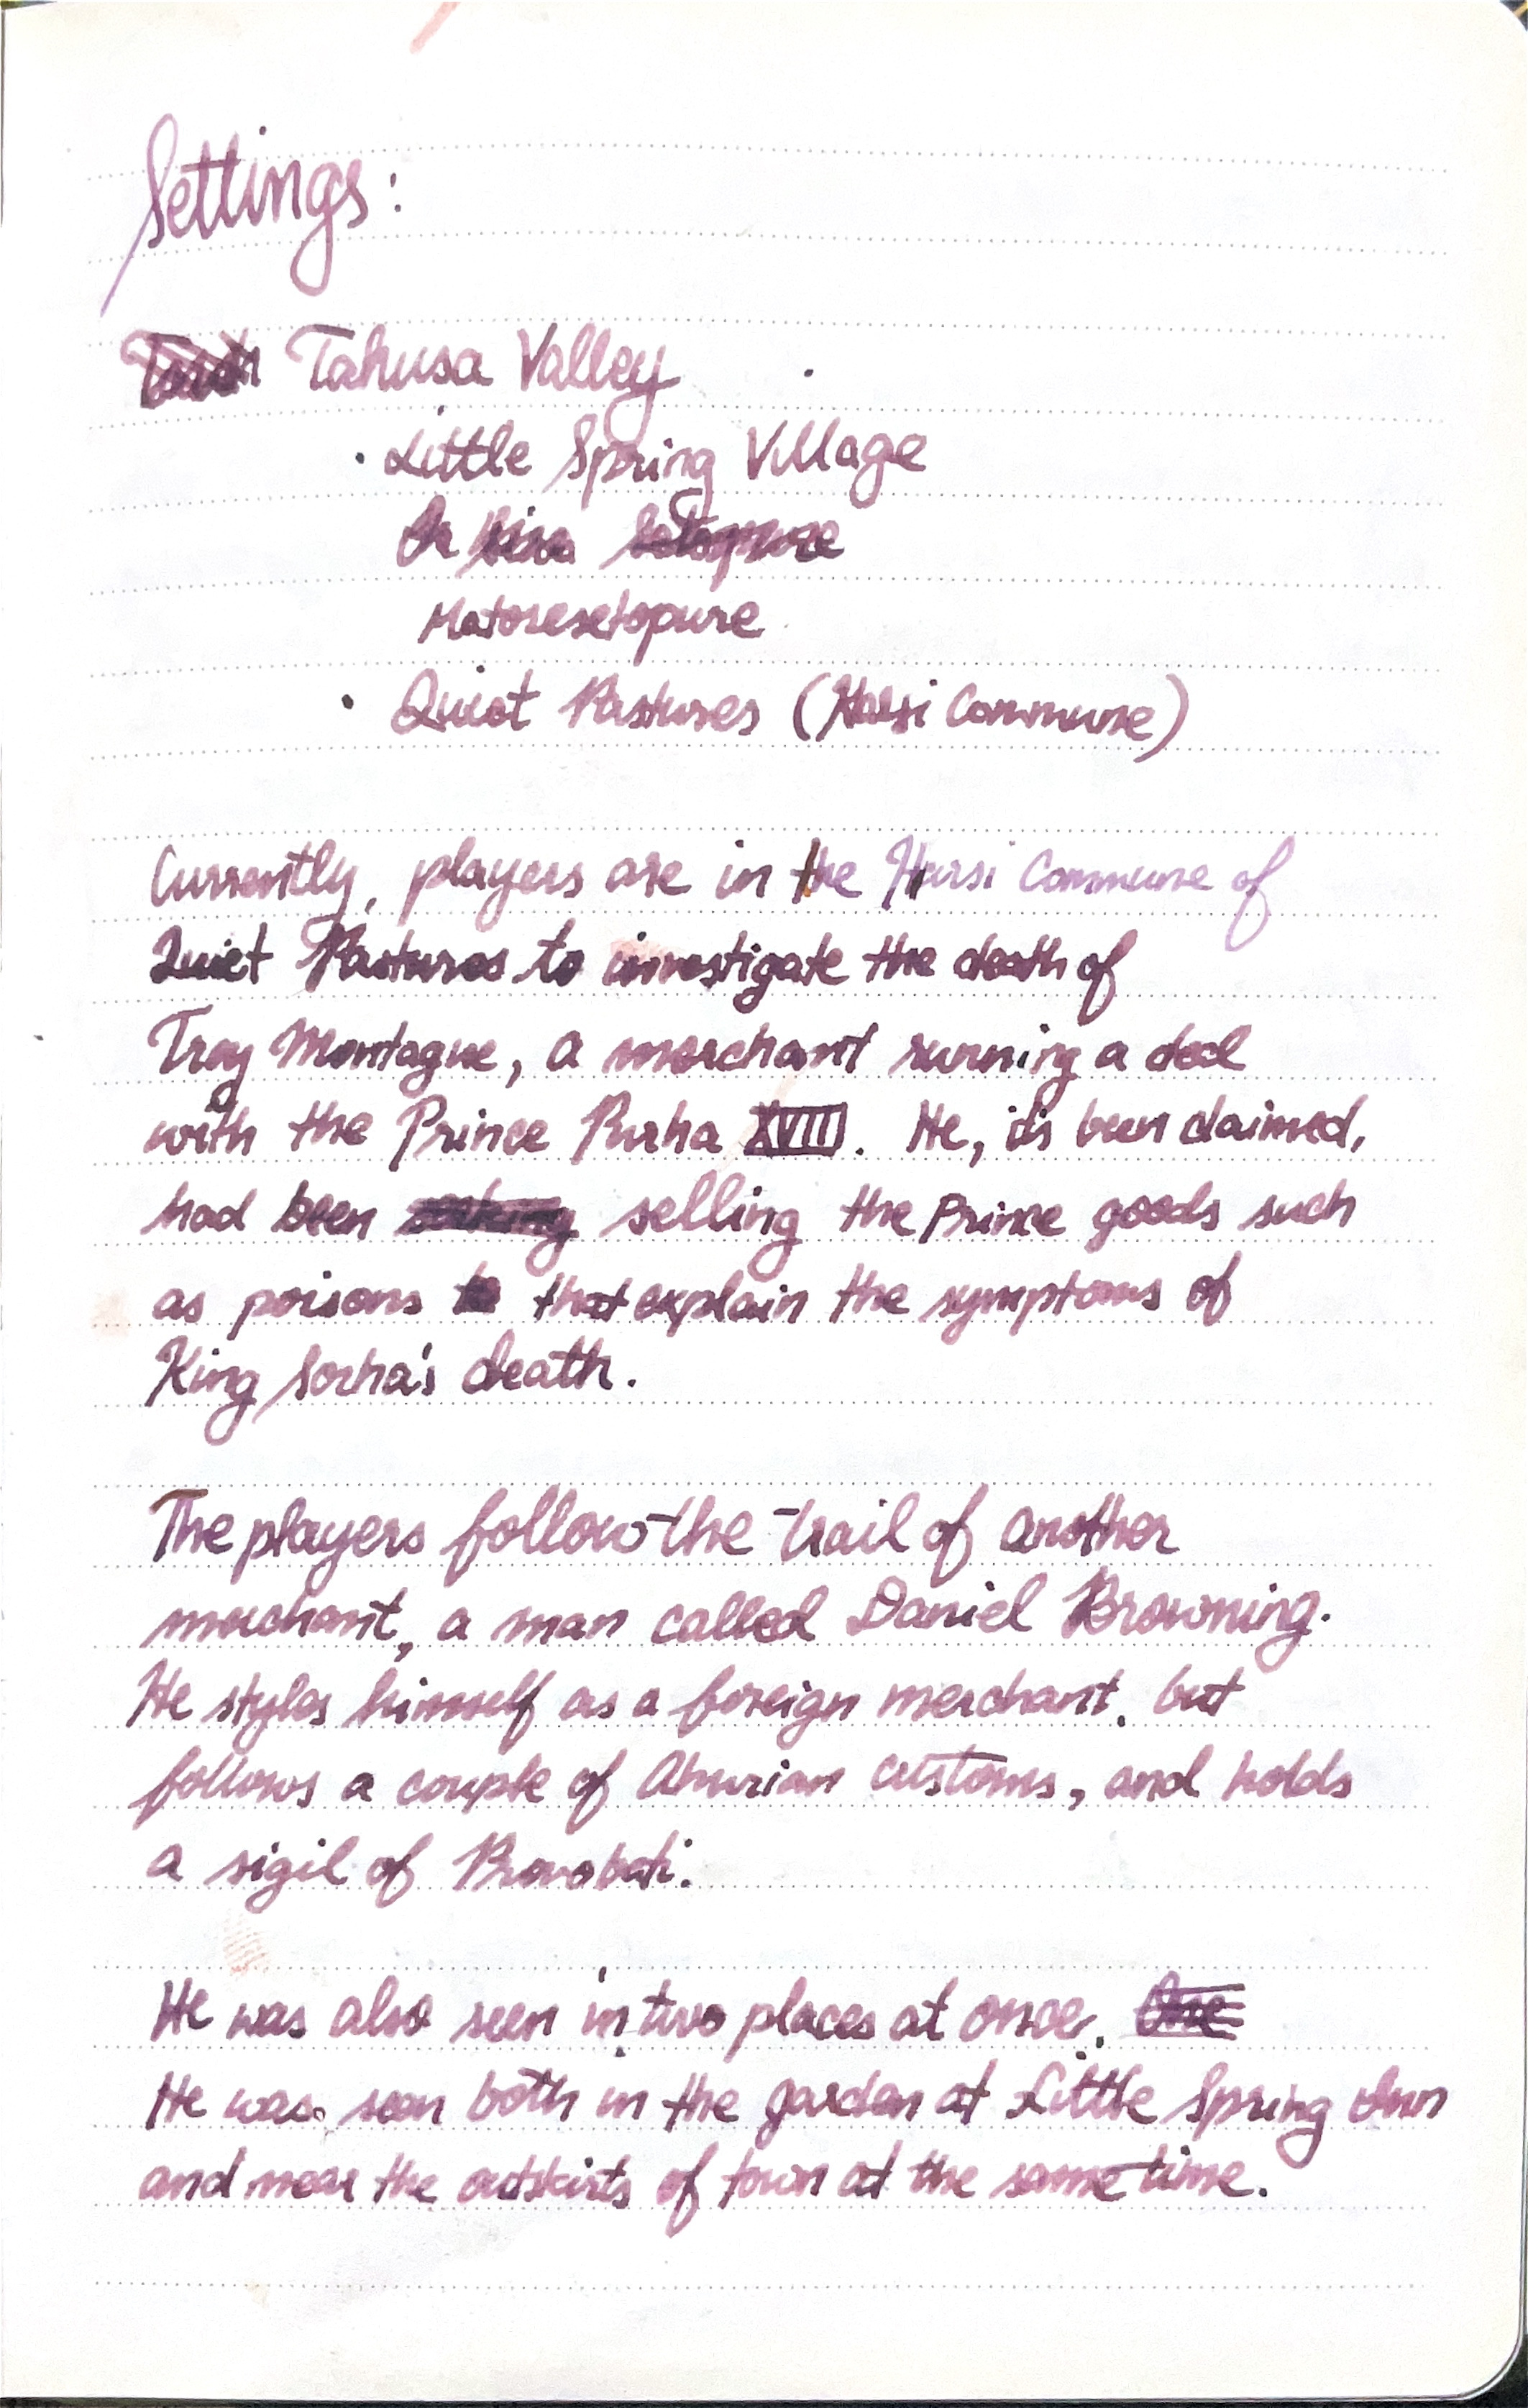 Settings:
Tahusa Valley
· Little Spring Village
Matoresetopure
· Quiet Pastures (Harsi Commune)
Currently, players are in the Harsi Commune of
Quiet Pastures to investigate the death of
Trey Montague, a merchant running a deal
with the Prince Purha XVIII. He, it's been claimed,
had been selling the Prince goods such
as poisons that explain the symptoms of
King Sorha's death.
The players follow the trail of another
merchant, a man called Daniel Browning.
He styles himself as a foreign merchant, but
follows a couple of Ahurian customs, and holds
a sigil of
He was also seen in two places at once.
He was seen both in the garden at Little Spring Inn
and near the outskirts of town at the same time.